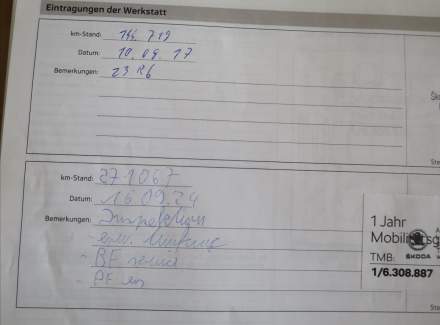 Eintragungen der Werkstatt
km-Stand: 144 719
Datum: 10.09.17
Bemerkungen: 23 R6
km-Stand: 271067
Datum: 16.09.24
Bemerkungen: Inspektion
- erw. Umfang
- BF neu
- PF
1 Jahr
Mobilitätsg
TMB
SKODA
1/6.308.887